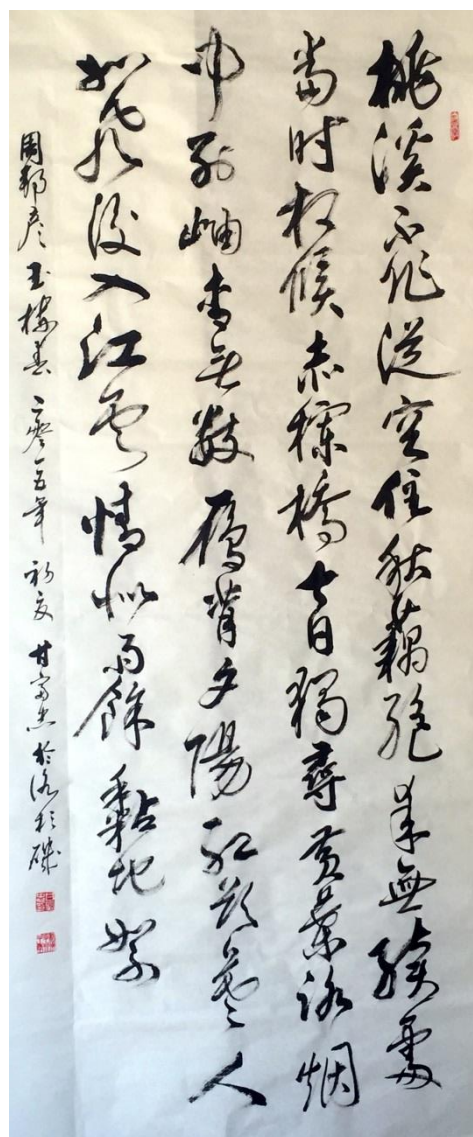 桃溪不作從容住秋藕絕來無續處
當时相候赤欄橋今日獨尋黃葉路烟
中列岫青无數雁背夕陽紅欲暮人
如風後入江雲情似雨餘黏地絮
周邦彥玉樓春 二零一五年 初夏 甘 於洛杉磯